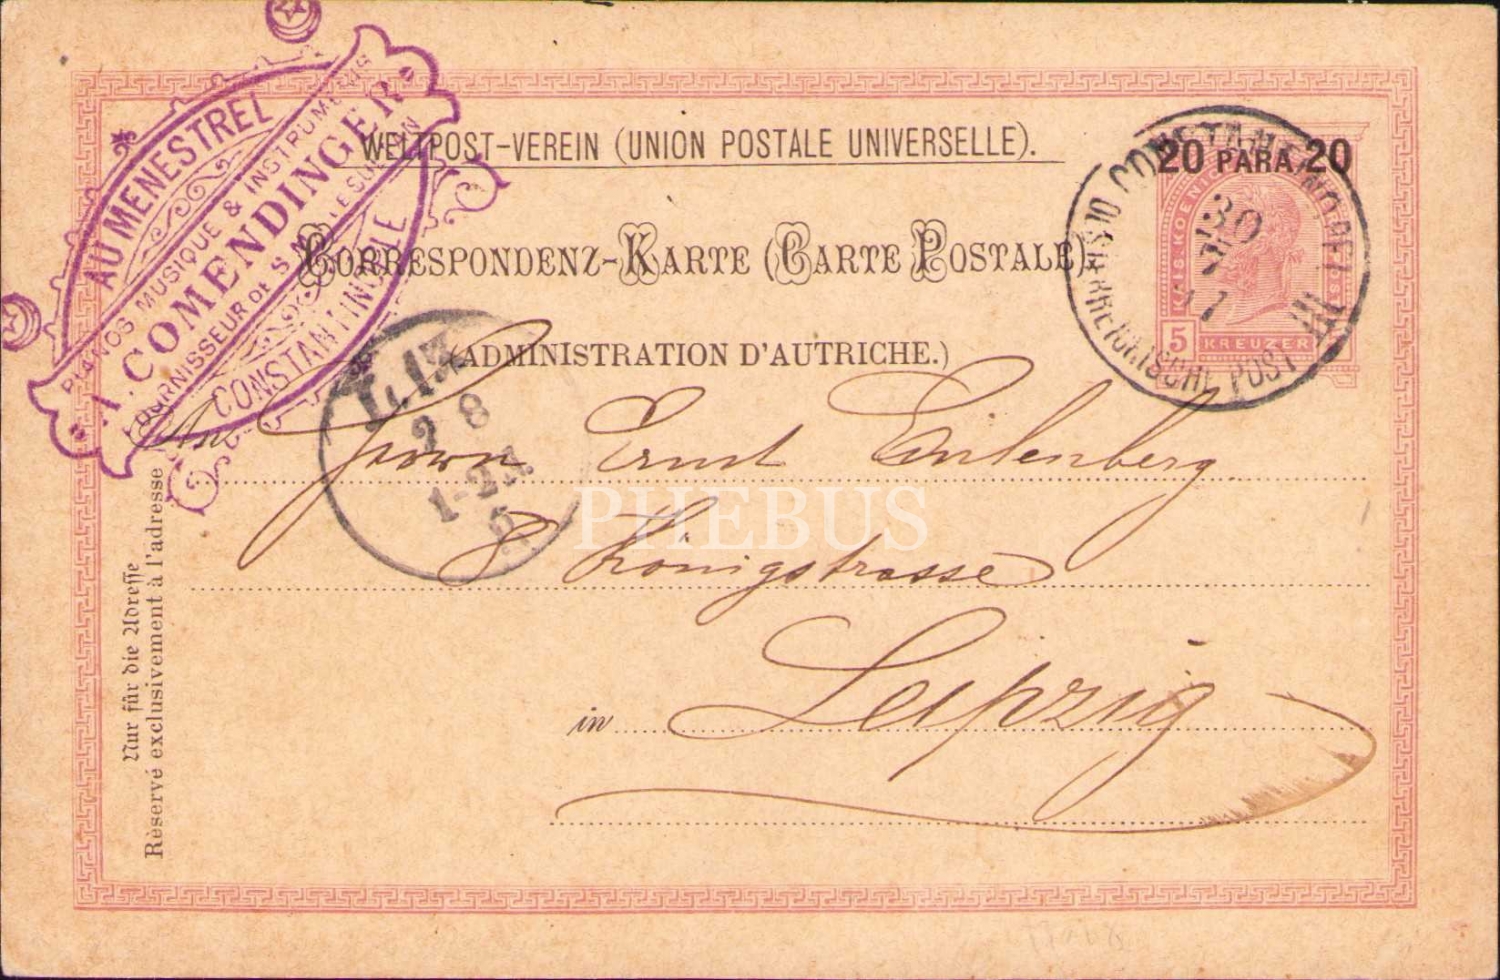 AU MENESTREL
PIANOS MUSIQUE & INSTRUMENTS
A. COMENDINGER
FOURNISSEUR DE S.M. LE SULTAN
CONSTANTINOPLE
WELTPOST-VEREIN (UNION POSTALE UNIVERSELLE).
CORRESPONDENZ-KARTE (CARTE POSTALE)
(ADMINISTRATION D'AUTRICHE.)
20 PARA 20
5 KREUZER
CONSTANTINOPEL III
ÖSTERREICHISCHE POST
30
An Herrn Ernst Eulenberg
8 Königstrasse
in Leipzig
2 8
1-2
Nur für die Adresse
Réservé exclusivement à l'adresse
PHEBUS